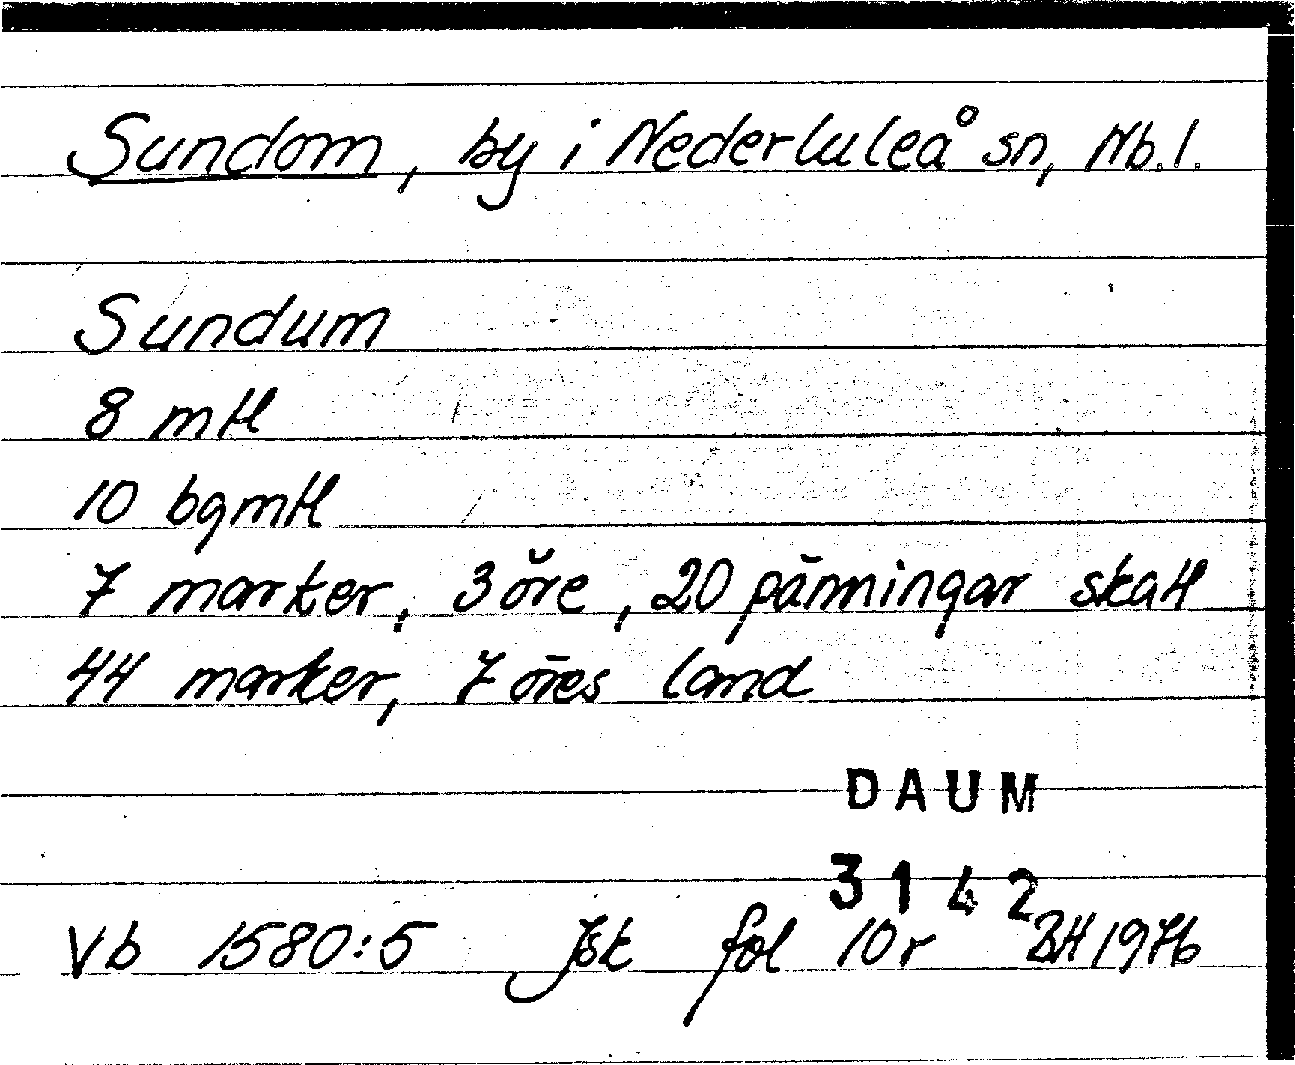 Sundom, by i Nederluleå sn, Nb. l.
Sundum
8 mtl
10 bgmtl
7 marker, 3 öre, 20 pänningar skatt
44 marker, 7 öres land
DAUM
3142
Vb 1580:5 Jsk fol 10r BH 1976